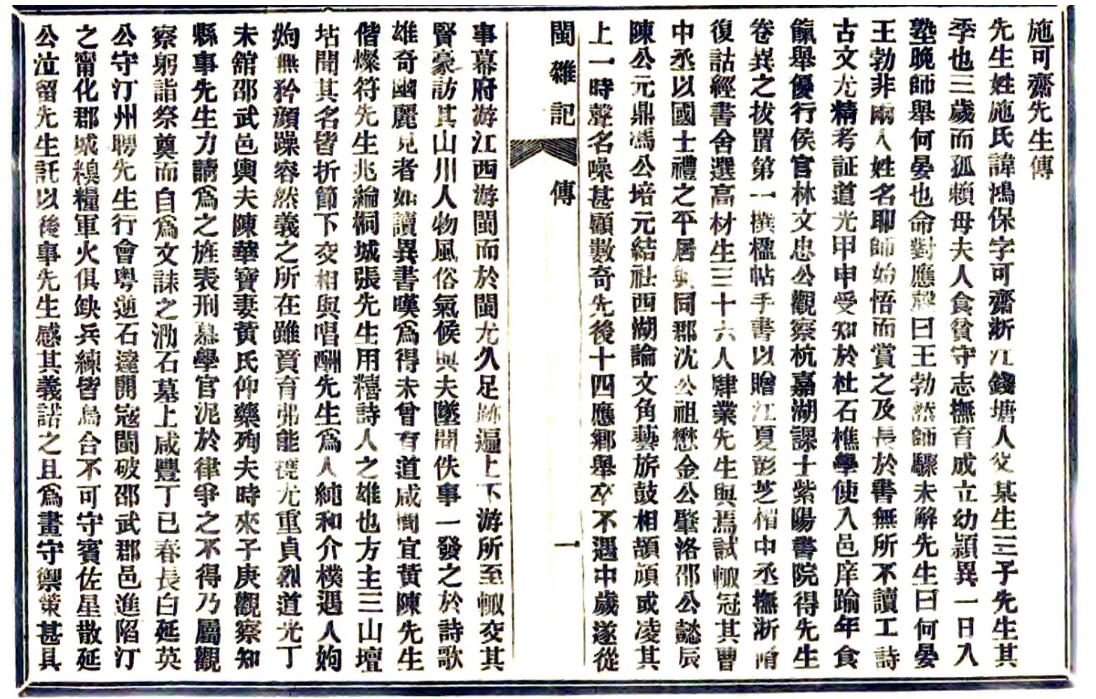 施可齋先生傳
先生姓施氏諱鴻保字可齋浙江錢塘人父某生三子先生其
季也三歲而孤賴母夫人食貧守志撫育成立幼穎異一日入
塾晚師舉何晏也命對應聲曰王勃然師驟未解先生曰何晏
王勃非兩人姓名聊師始悟而賞之及長於書無所不讀工詩
古文尤精考証道光甲申受知於杜石樵學使入邑庠踰年食
餼舉優行侯官林文忠公觀察杭嘉湖課士紫陽書院得先生
卷異之拔置第一撰楹帖手書以贈江夏彭芝楣中丞撫浙
復詁經書舍選高材生三十六人肄業先生與焉試輒冠其曹
中丞以國士禮之平居與同郡沈公祖懋金公肇洛邵公懿辰
陳公元鼎馮公培元結社西湖論文角藝旂鼓相頡頏或凌其
上一時聲名噪甚顧數奇先後十四應鄉舉卒不遇中歲遂從
閩雜記 傳 一
事幕府游江西游閩而於閩尤久足跡遍上下游所至輒交其
賢豪訪其山川人物風俗氣候與夫墜聞佚事一發之於詩歌
雄奇幽麗見者如讀異書嘆為得未曾有道咸間宜黃陳先生
偕燦符先生兆綸桐城張先生用糦詩人之雄也方主三山壇
坫聞其名皆折節下交相與唱酬先生為人純和介樸遇人姁
姁無矜顏躁容然義之所在雖賁育弗能奪尤重貞烈道光丁
未舘邵武邑輿夫陳華寶妻黃氏仰藥殉夫時來子庚觀察知
縣事先生力請為之旌表刑幕學官泥於律爭之不得乃屬觀
察躬詣祭奠而自為文誄之泐石墓上咸豐丁巳春長白延英
公守汀州聘先生行會粵逆石達開寇閩破邵武郡邑進陷汀
之甯化郡城糗糧軍火俱缺兵練皆烏合不可守賓佐星散延
公泣留先生託以後事先生感其義諾之且為畫守禦策甚具